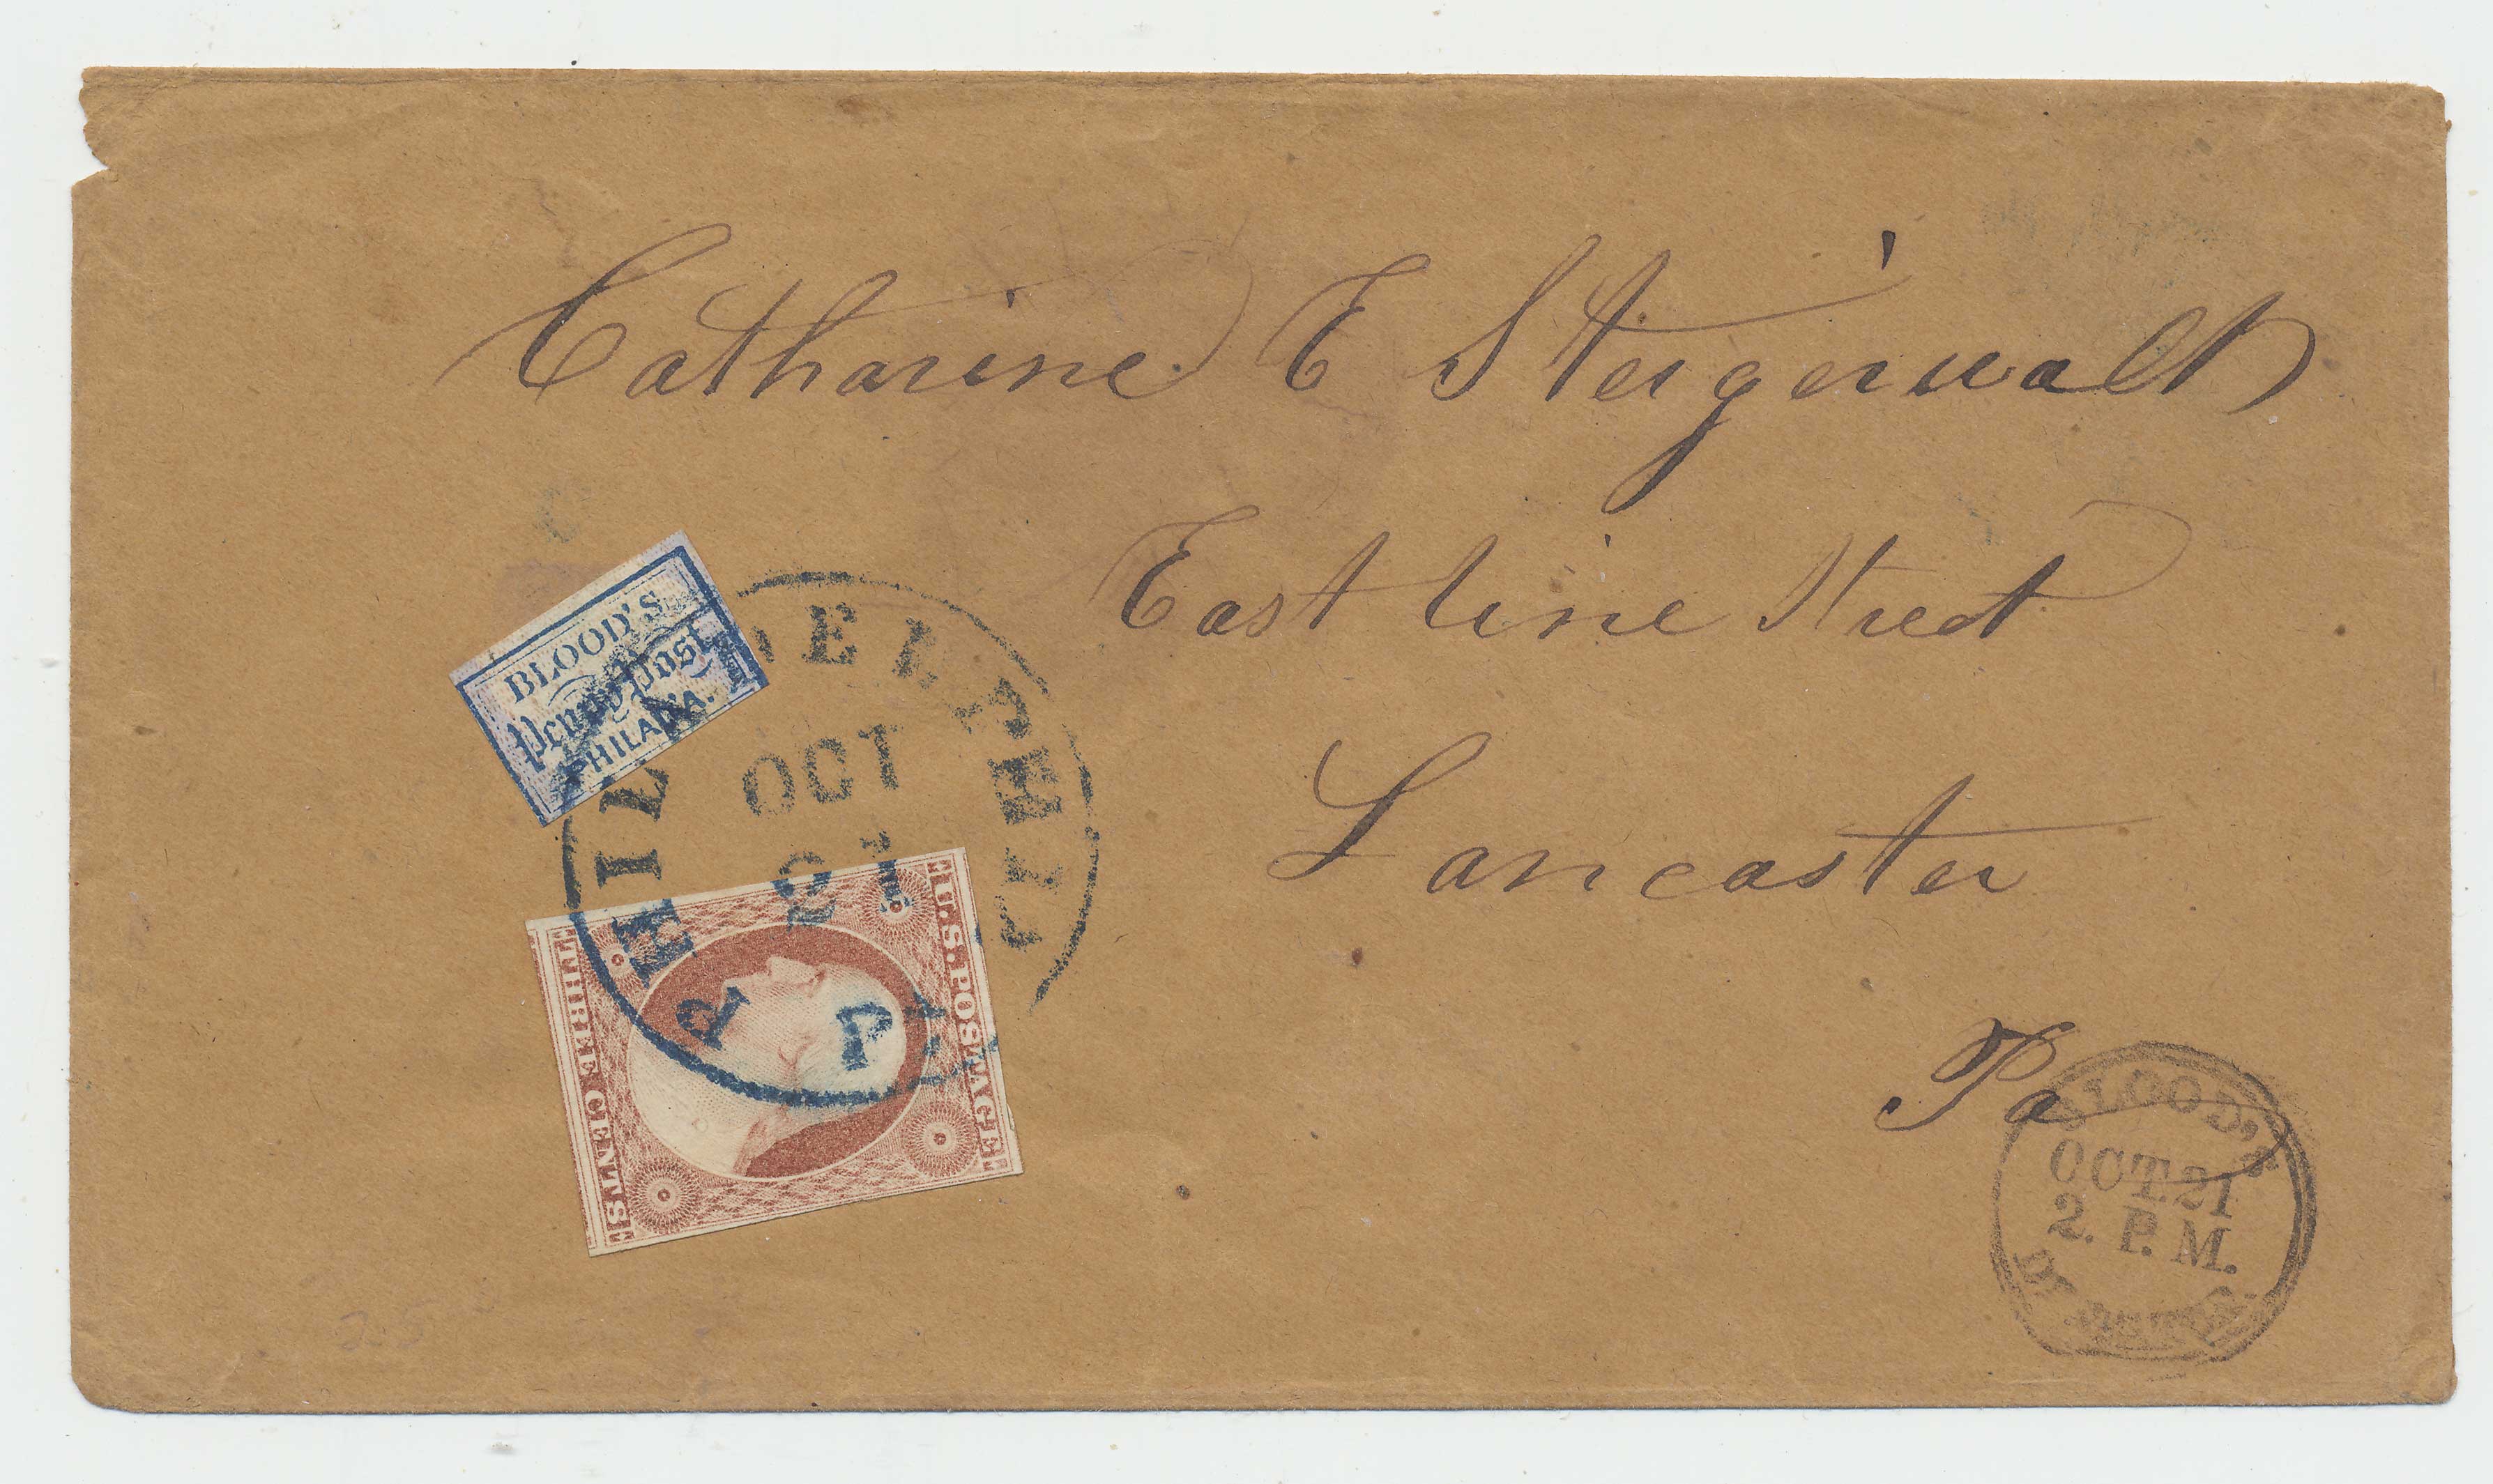 Catharine E Steigerwalt
East line Street
Lancaster
Pa
BLOOD'S
Penny Post
PHILAD'A.
PHILADELPHIA
OCT
21
Pa
U.S. POSTAGE
THREE CENTS
BLOOD'S
OCT. 21
2. P. M.